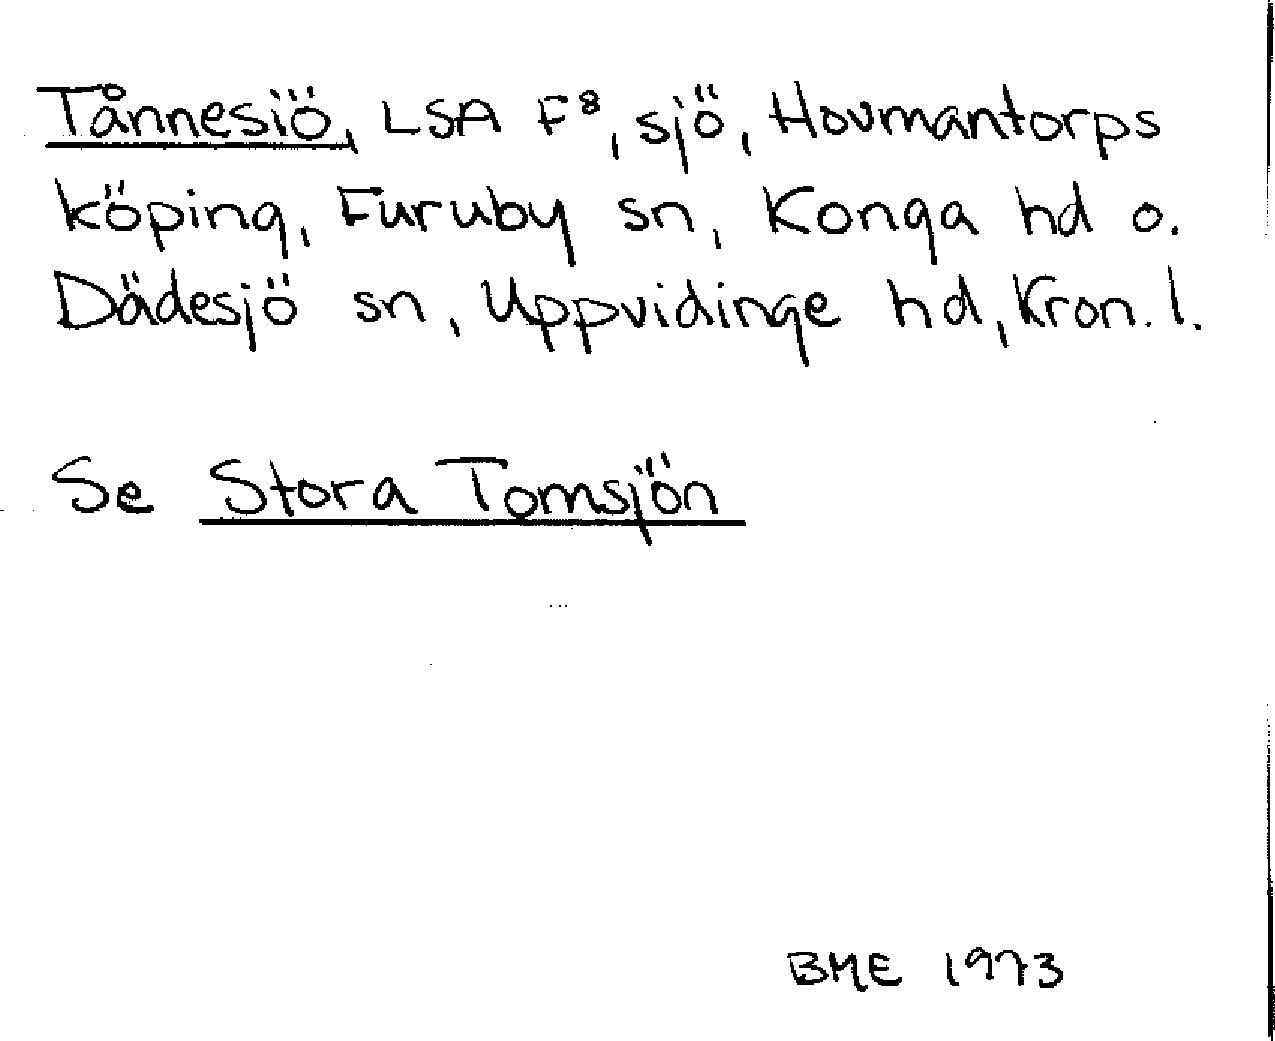 Tånnesiö, LSA F⁸, sjö, Hovmantorps
köping, Furuby sn, Konga hd o.
Dädesjö sn, Uppvidinge hd, Kron. l.
Se Stora Tomsjön
BME 1973